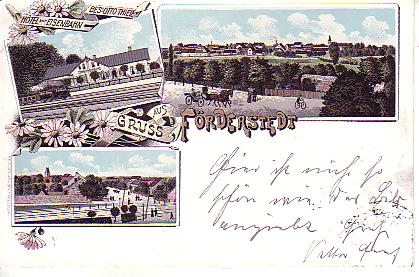 HOTEL zur EISENBAHN
BES: OTTO THIELE
GRUSS AUS
FÖRDERSTEDT
Hier ist nicht so
schön wie das Bild
angiebt